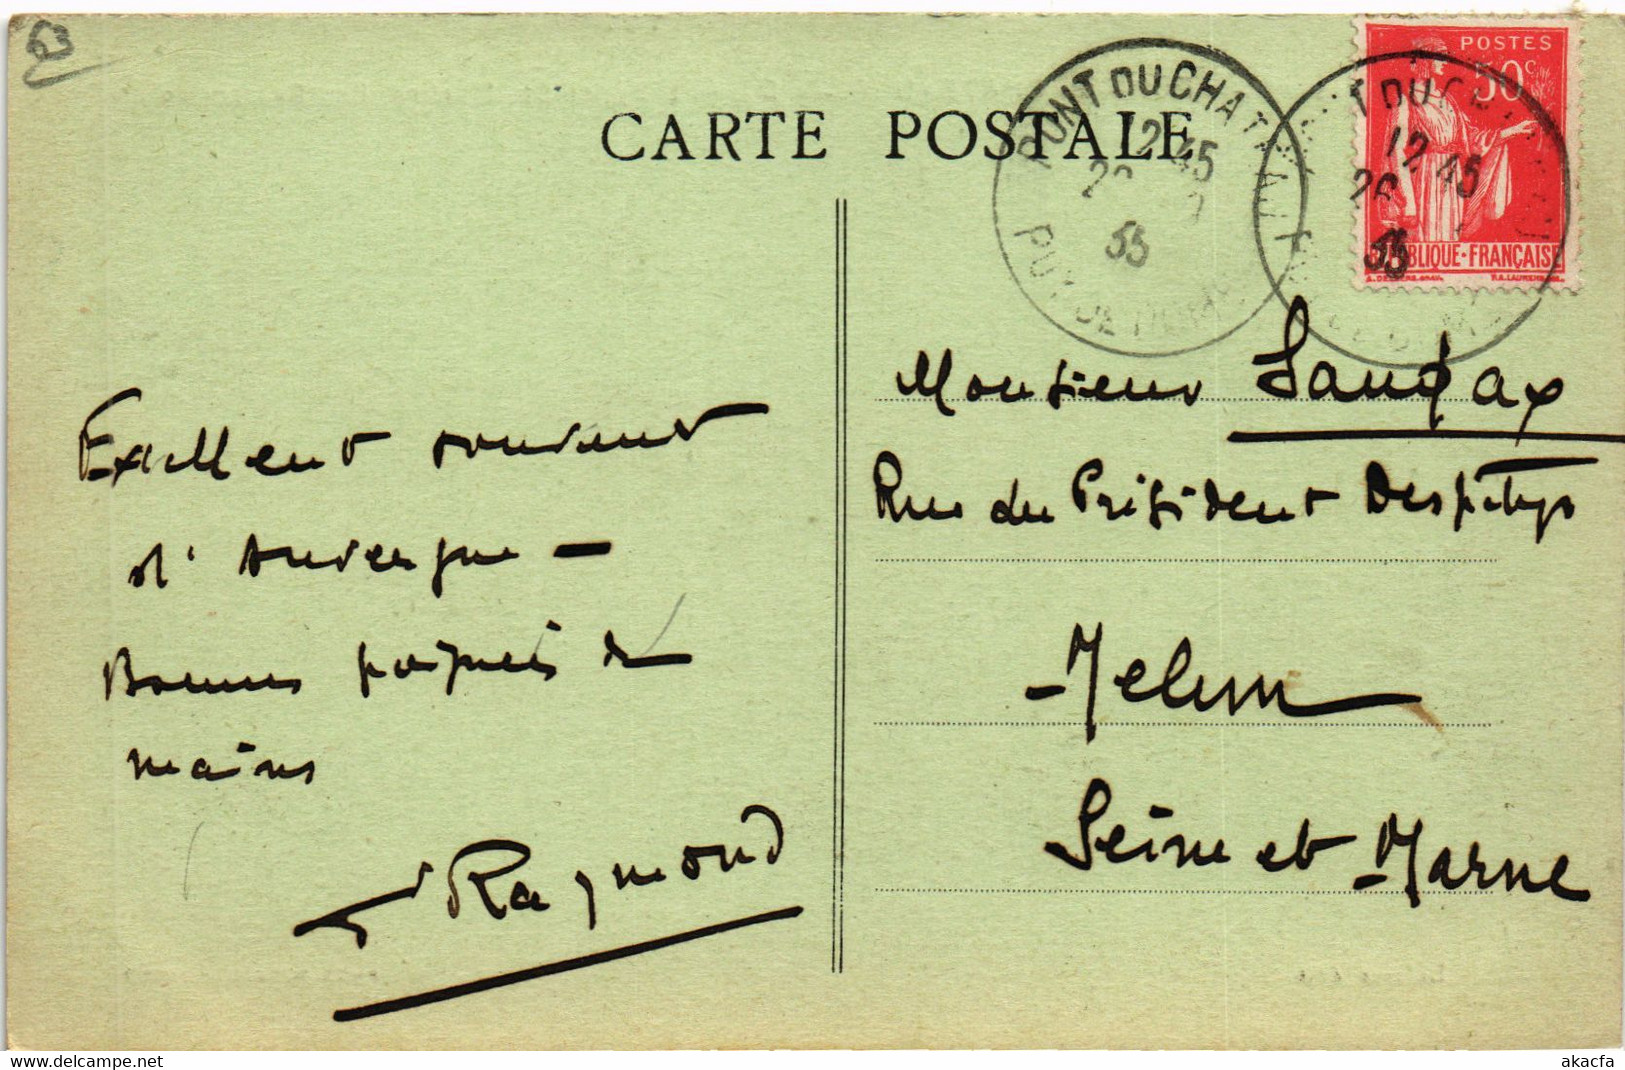 63
CARTE POSTALE
POSTES
50c
RÉPUBLIQUE-FRANÇAISE
PONT DU CHATEAU
12 45
26
35
PUY DE DOME
T DU CHATEAU
12 45
26
35
Excellent souvenir
d'Auvergne —
Bonnes poignées de
mains
Raymond
Monsieur
Rue du Président Despatys
Melun
Seine et Marne
www.delcampe.net
akacfa